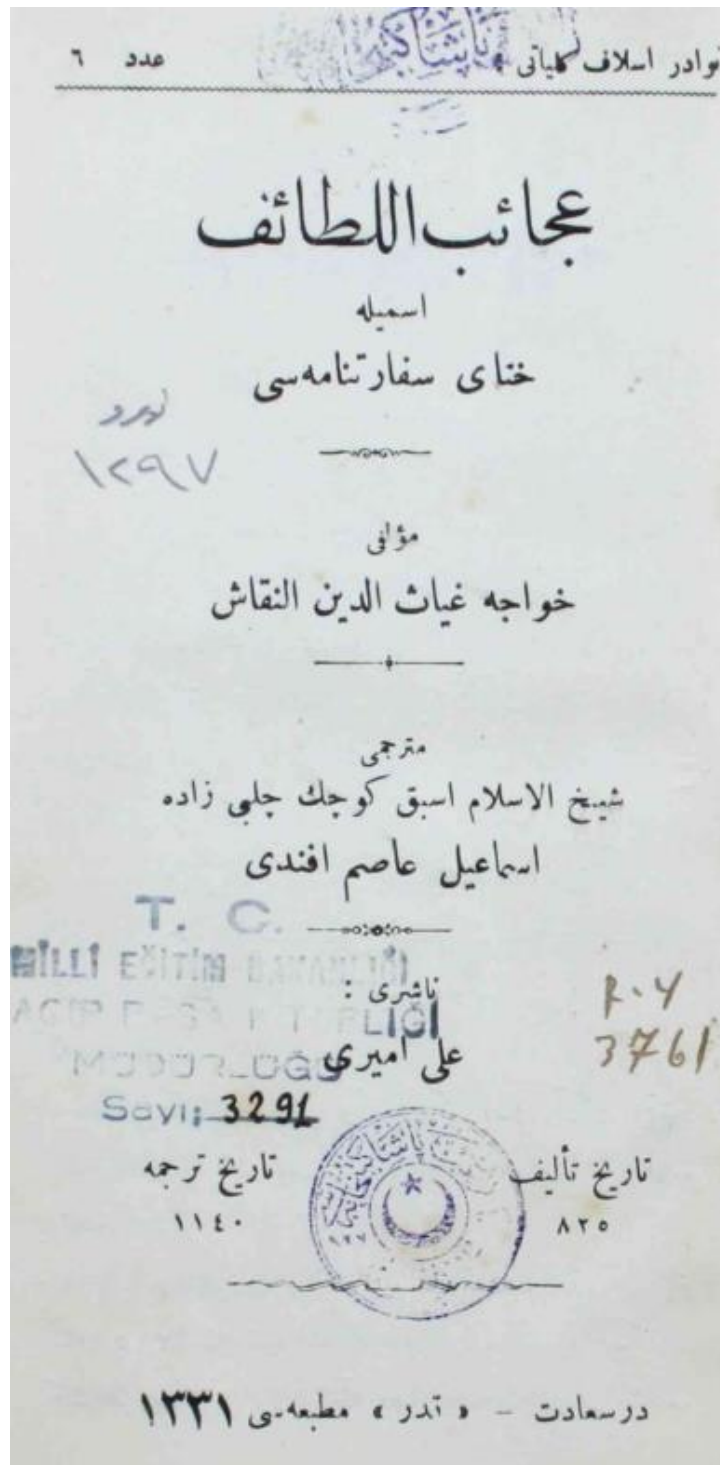 نوادر اسلاف كلياتى عدد ٦
عجائب اللطائف
اسميله
ختاى سفارتنامه‌سى
١٢٩٧
مؤلفى
خواجه غياث الدين النقاش
مترجمى
شيخ الاسلام اسبق كوچك چلبى زاده
اسماعيل عاصم افندى
T. C.
MİLLÎ EĞİTİM BAKANLIĞI
MÜDÜRLÜĞÜ
Sayı: 3291
ناشرى :
على اميرى
3761
تاريخ تأليف
٨٢٥
تاريخ ترجمه
١١٤٠
درسعادت – « قدر » مطبعه‌سى ١٣٣١